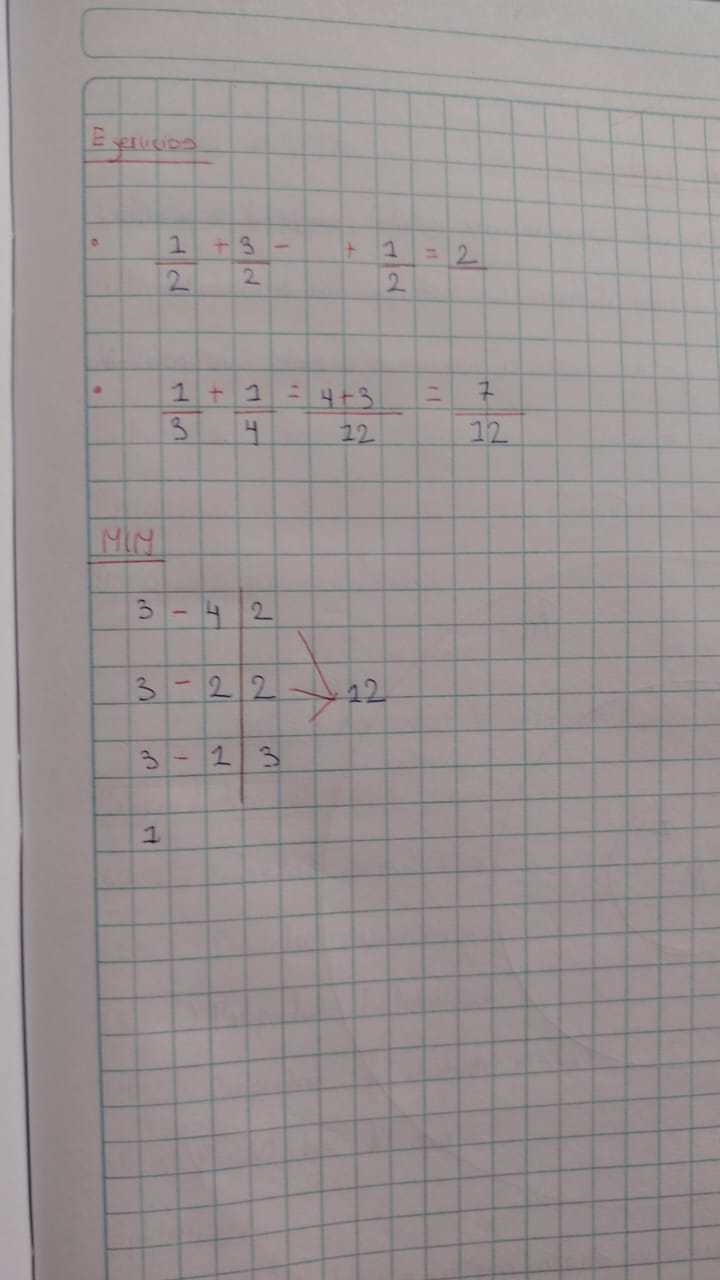 Ejercicios
• 1/2 + 3/2 - + 1/2 = 2
• 1/3 + 1/4 = 4+3/12 = 7/12
MCM
3 - 4 | 2
3 - 2 | 2 → 12
3 - 1 | 3
1